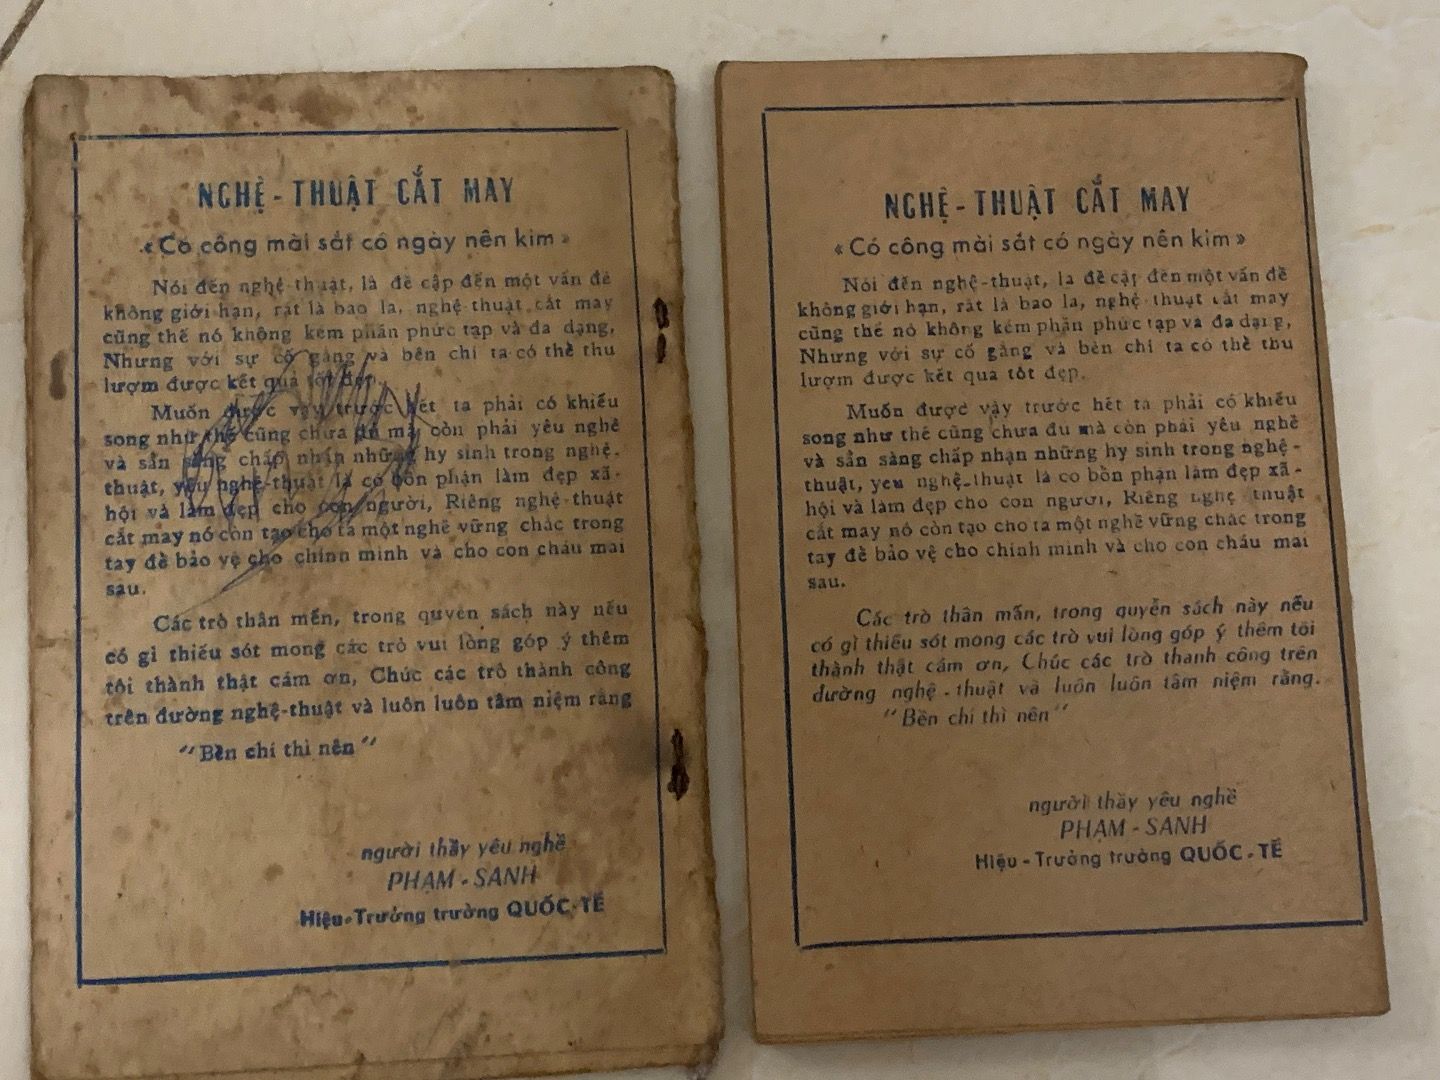 NGHỆ - THUẬT CẮT MAY
« Có công mài sắt có ngày nên kim »
Nói đến nghệ-thuật, là đề cập đến một vấn đề
không giới hạn, rất là bao la, nghệ-thuật cắt may
cũng thế nó không kém phần phức tạp và đa dạng,
Nhưng với sự cố gắng và bền chí ta có thể thu
lượm được kết quả tốt đẹp.
Muốn được vậy trước hết ta phải có khiếu
song như thế cũng chưa đủ mà còn phải yêu nghề
và sẳn sàng chấp nhận những hy sinh trong nghệ.
thuật, yêu nghệ-thuật là có bổn phận làm đẹp xã-
hội và làm đẹp cho con người, Riêng nghệ-thuật
cắt may nó còn tạo cho ta một nghề vững chắc trong
tay để bảo vệ cho chính mình và cho con cháu mai
sau.
Các trò thân mến, trong quyển sách này nếu
có gì thiếu sót mong các trò vui lòng góp ý thêm
tôi thành thật cám ơn, Chúc các trò thành công
trên đường nghệ-thuật và luôn luôn tâm niệm rằng
"Bền chí thì nên"
người thầy yêu nghề
PHẠM - SANH
Hiệu-Trưởng trường QUỐC-TẾ
NGHỆ - THUẬT CẮT MAY
« Có công mài sắt có ngày nên kim »
Nói đến nghệ-thuật, là đề cập đến một vấn đề
không giới hạn, rất là bao la, nghệ thuật cắt may
cũng thế nó không kém phần phức tạp và đa dạng,
Nhưng với sự cố gắng và bền chí ta có thể thu
lượm được kết quả tốt đẹp.
Muốn được vậy trước hết ta phải có khiếu
song như thế cũng chưa đủ mà còn phải yêu nghề
và sẳn sàng chấp nhận những hy sinh trong nghệ-
thuật, yêu nghệ-thuật là có bổn phận làm đẹp xã-
hội và làm đẹp cho con người, Riêng nghệ thuật
cắt may nó còn tạo cho ta một nghề vững chắc trong
tay để bảo vệ cho chính mình và cho con cháu mai
sau.
Các trò thân mến, trong quyển sách này nếu
có gì thiếu sót mong các trò vui lòng góp ý thêm tôi
thành thật cám ơn, Chúc các trò thành công trên
đường nghệ-thuật và luôn luôn tâm niệm rằng.
"Bền chí thì nên"
người thầy yêu nghề
PHẠM - SANH
Hiệu-Trưởng trường QUỐC-TẾ